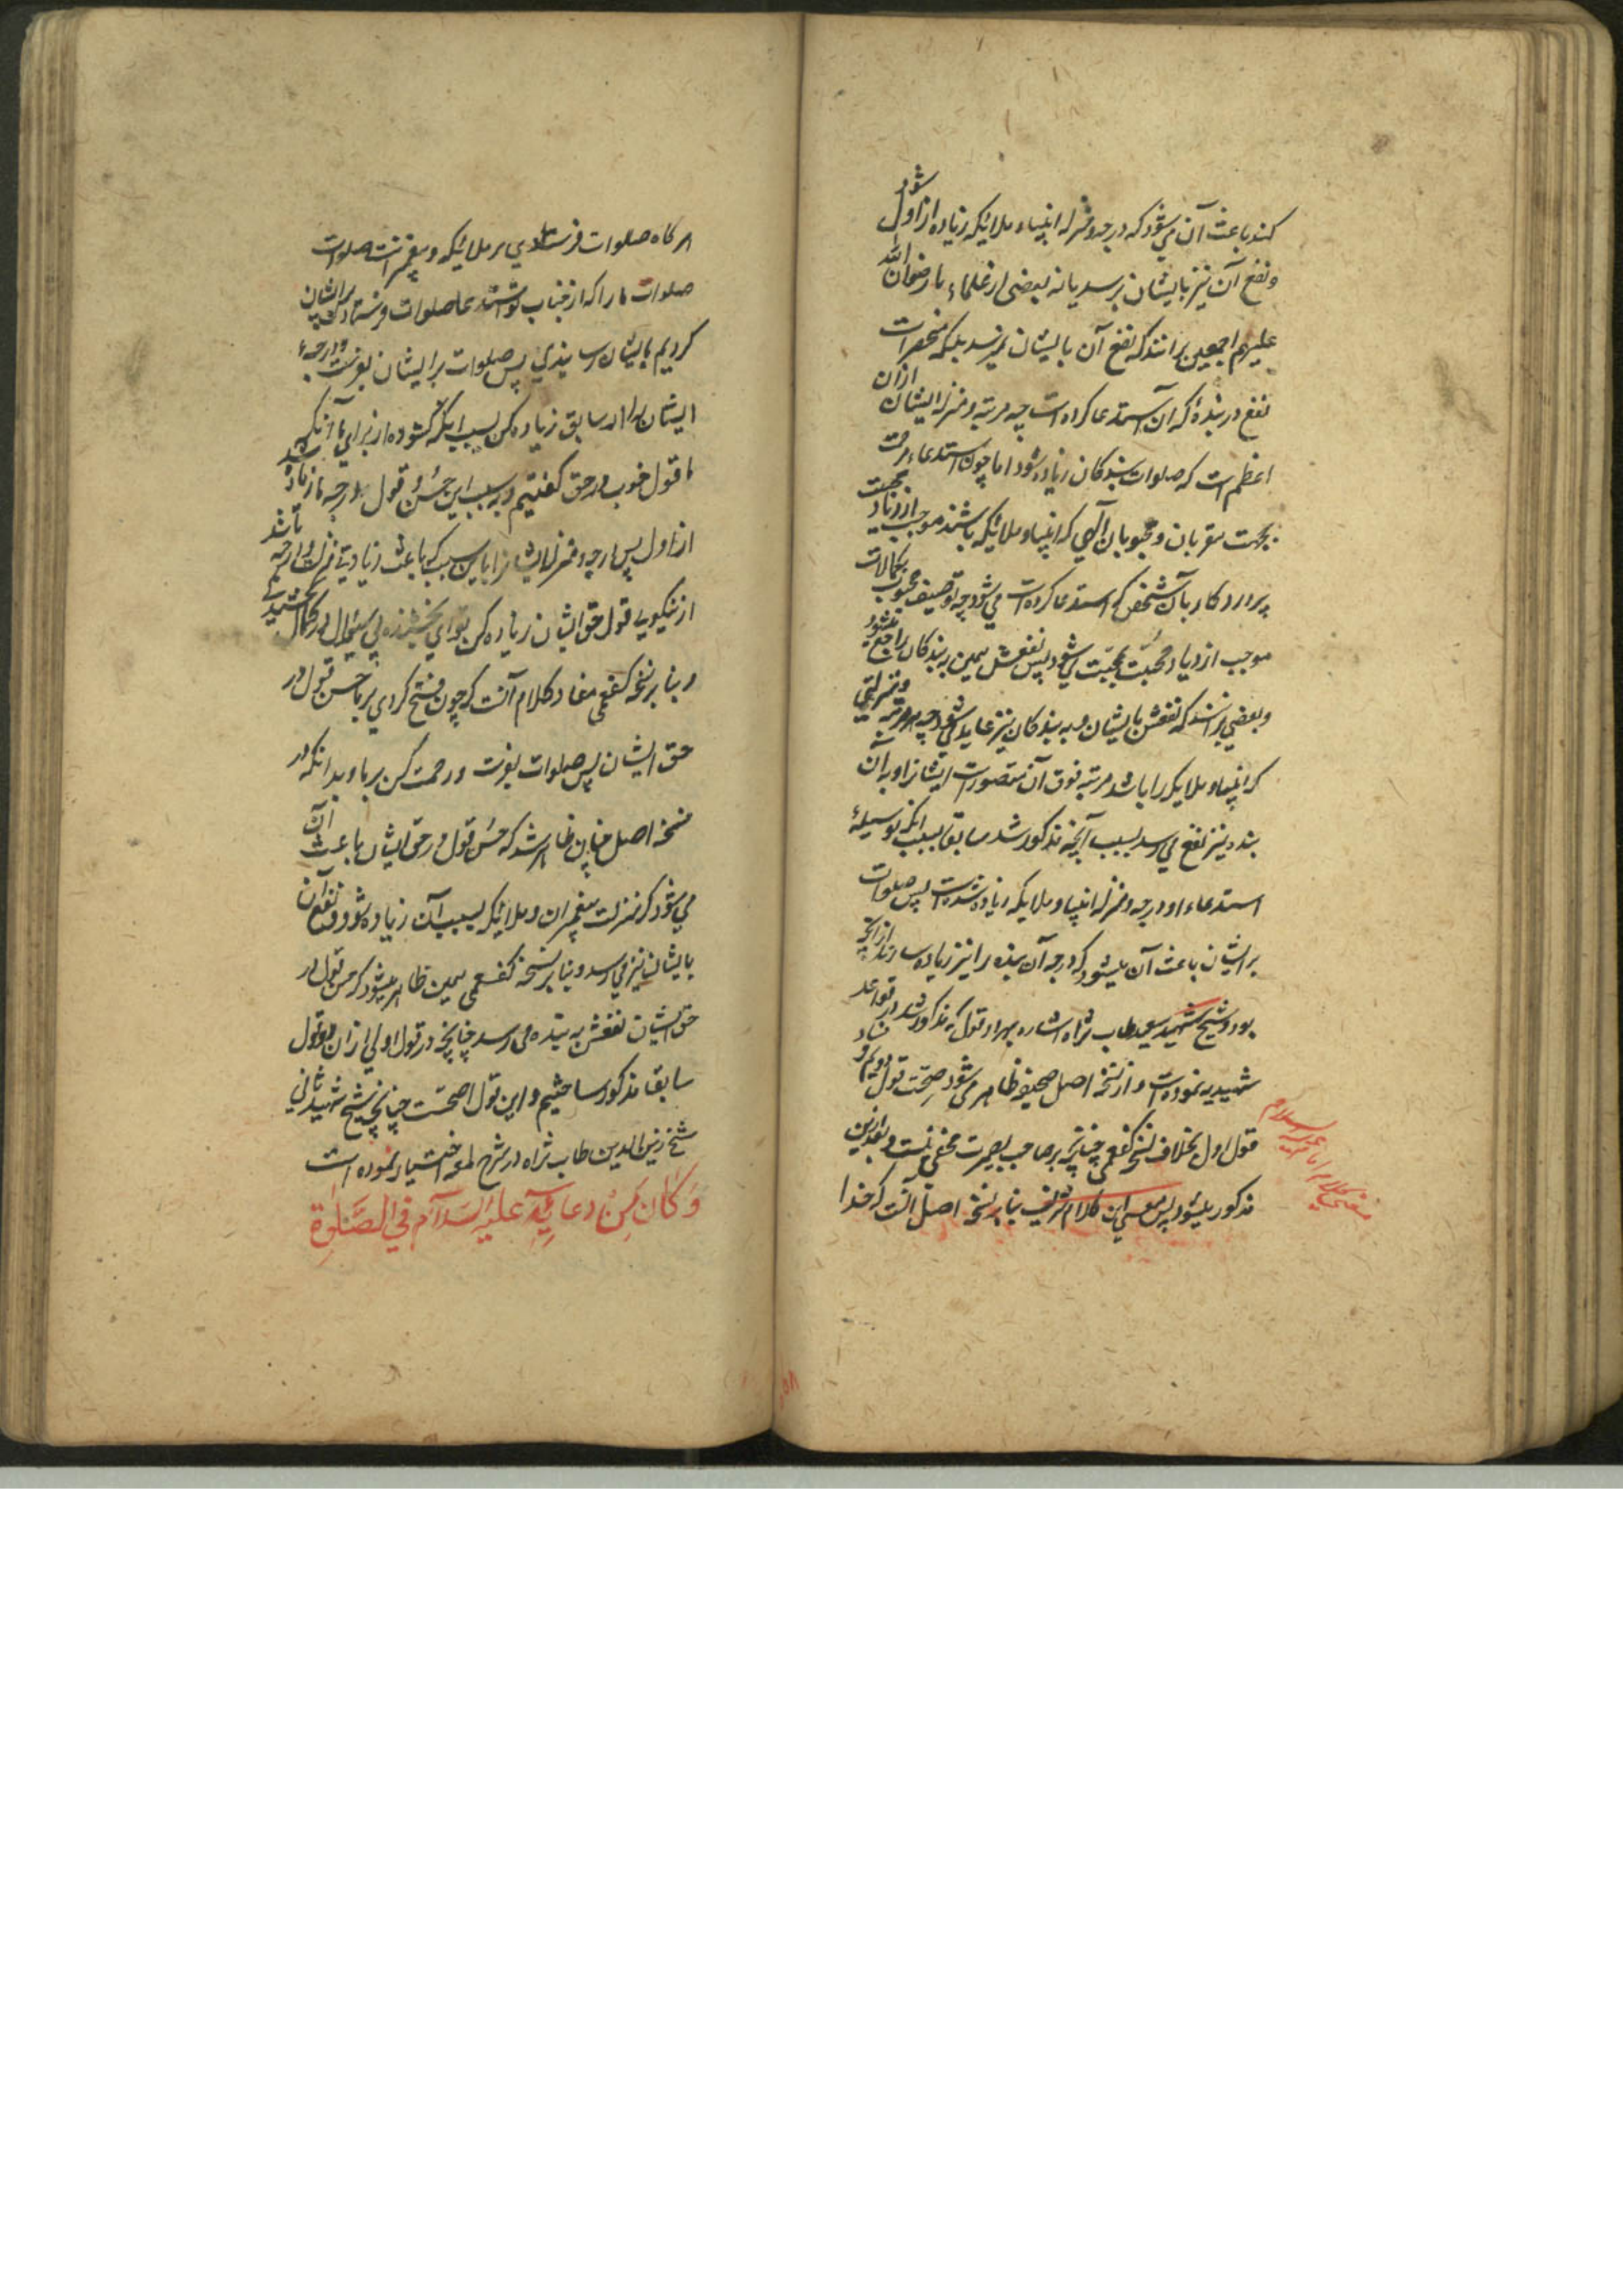 کند باعث آن می‌شود که درجه و منزله انبیاء و ملائیکه زیاده از اول شود
و نفع آن نیز بایشان برسد یا نه بعضی از علماء ما رضوان الله
علیهم اجمعین برانند که نفع آن بایشان نمیرسد بلکه منحصر است
نفع در بنده که آن استدعا کرده است چه مرتبه و منزله ایشان از آن
اعظم است که صلوات بندکان زیاده شود اما چون استدعاء رحمت
بجهت مقربان و محبوبان الهی که انبیاء و ملائیکه باشند موجب ازدیاد محبت
پروردکار بآن شخص که استدعا کرده است می شود چه توصیف محبوب بکمالات
موجب ازدیاد محبت محبت می شود پس نفعش همین به بندکان راجع میشود
و بعضی برانند که نفعش بایشان و به بندکان نیز عاید می شود چه هر مرتبه و منزلتی
که انبیاء و ملایکه را باشد مرتبه فوق آن متصور است ایشانرا و به آن
بنده نیز نفع می رسد بسبب آنچه مذکور شد سابقا بسبب آنکه بوسیلهٔ
استدعاء او درجه و منزله انبیاء و ملایکه زیاده شده است پس صلوات
بر ایشان باعث آن میشود که درجه آن بنده را نیز زیاده سازند از آنچه
بود و شیخ شهید سعید طاب ثراه اشاره بهر دو قول که مذکور شد در قواعد
شهیدیه نموده است و از نسخه اصل صحیفه ظاهر می شود صحت قول دویم و فساد
قول اول بخلاف نسخه کفعمی چنانچه بر صاحب بصیرت مخفی نیست و بعد ازین
مذکور میشود پس معنی این کلام شریف بنا بر نسخه اصل آنست که خدا
معنی کلام امام علیه السلام
هر کاه صلوات فرستادی بر ملائیکه و پیغمبرانت صلوات
صلوات ما را که از جناب تو استدعا صلوات فرستادن بر ایشان
کردیم بایشان رسانیدی پس صلوات بر ایشان بفرست و درجهٔ
ایشان را از سابق زیاده کن بسبب اینکه کشوده از برای ما آنکه
ما قول خوب در حق کفتیم و بسبب این حسن قول درجه ما زیاده شد
از اول پس درجه و منزله ایشانرا باین سبب که باعث زیادتی منزلت و درجه ما شد
از نیکویی قول حق ایشان زیاده کن تو ای بخشنده بی سئوال در کمال بخشیدنی
و بنا بر نسخه کفعمی مفاد کلام آنست که چون فتح کردی بر ما حسن قول در
حق ایشان پس صلوات بفرست و رحمت کن بر ما و بدانکه در
نسخه اصل چنان ظاهر شد که حسن قول در حق ایشان باعث آن
می شود که منزلت پیغمبران و ملائیکه بسبب آن زیاده شود و نفع آن
بایشان نیز می رسد و بنا بر نسخه کفعمی همین ظاهر میشود که حسن قول در
حق ایشان نفعش به بنده می رسد چنانچه در قول اولی از آن دو قول
سابقا مذکور ساختیم و این قول اصحست چنانچه شیخ شهید ثانی
شیخ زین الدین طاب ثراه در شرح لمعه اختیار نموده است
وَكَانَ مِنْ دعائِهِ عليه السَّلام في الصَّلوةِ